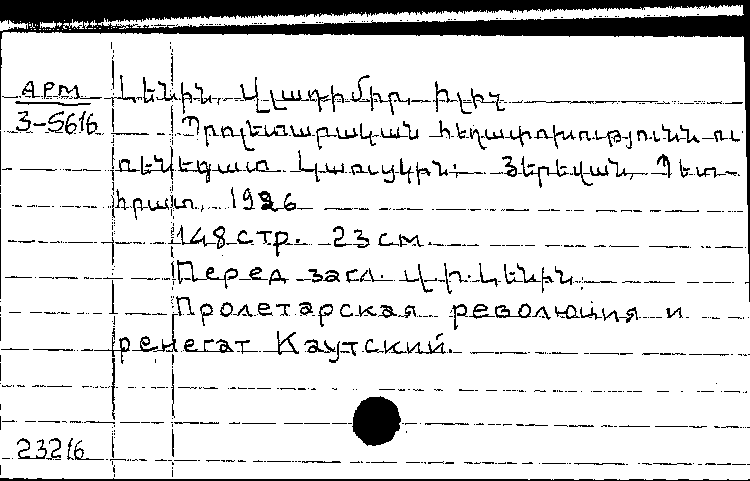 АРМ
3-5616
Լենին, Վլադիմիր, Իլիչ
Պրոլետարական հեղափոխությունն ու
ռենեգատ Կաուցկին: Յերեվան, Պետ-
հրատ, 1926
148 стр. 23 см.
Перед загл. Վ. Ի. Լենին.
Пролетарская революция и
ренегат Каутский.
23216